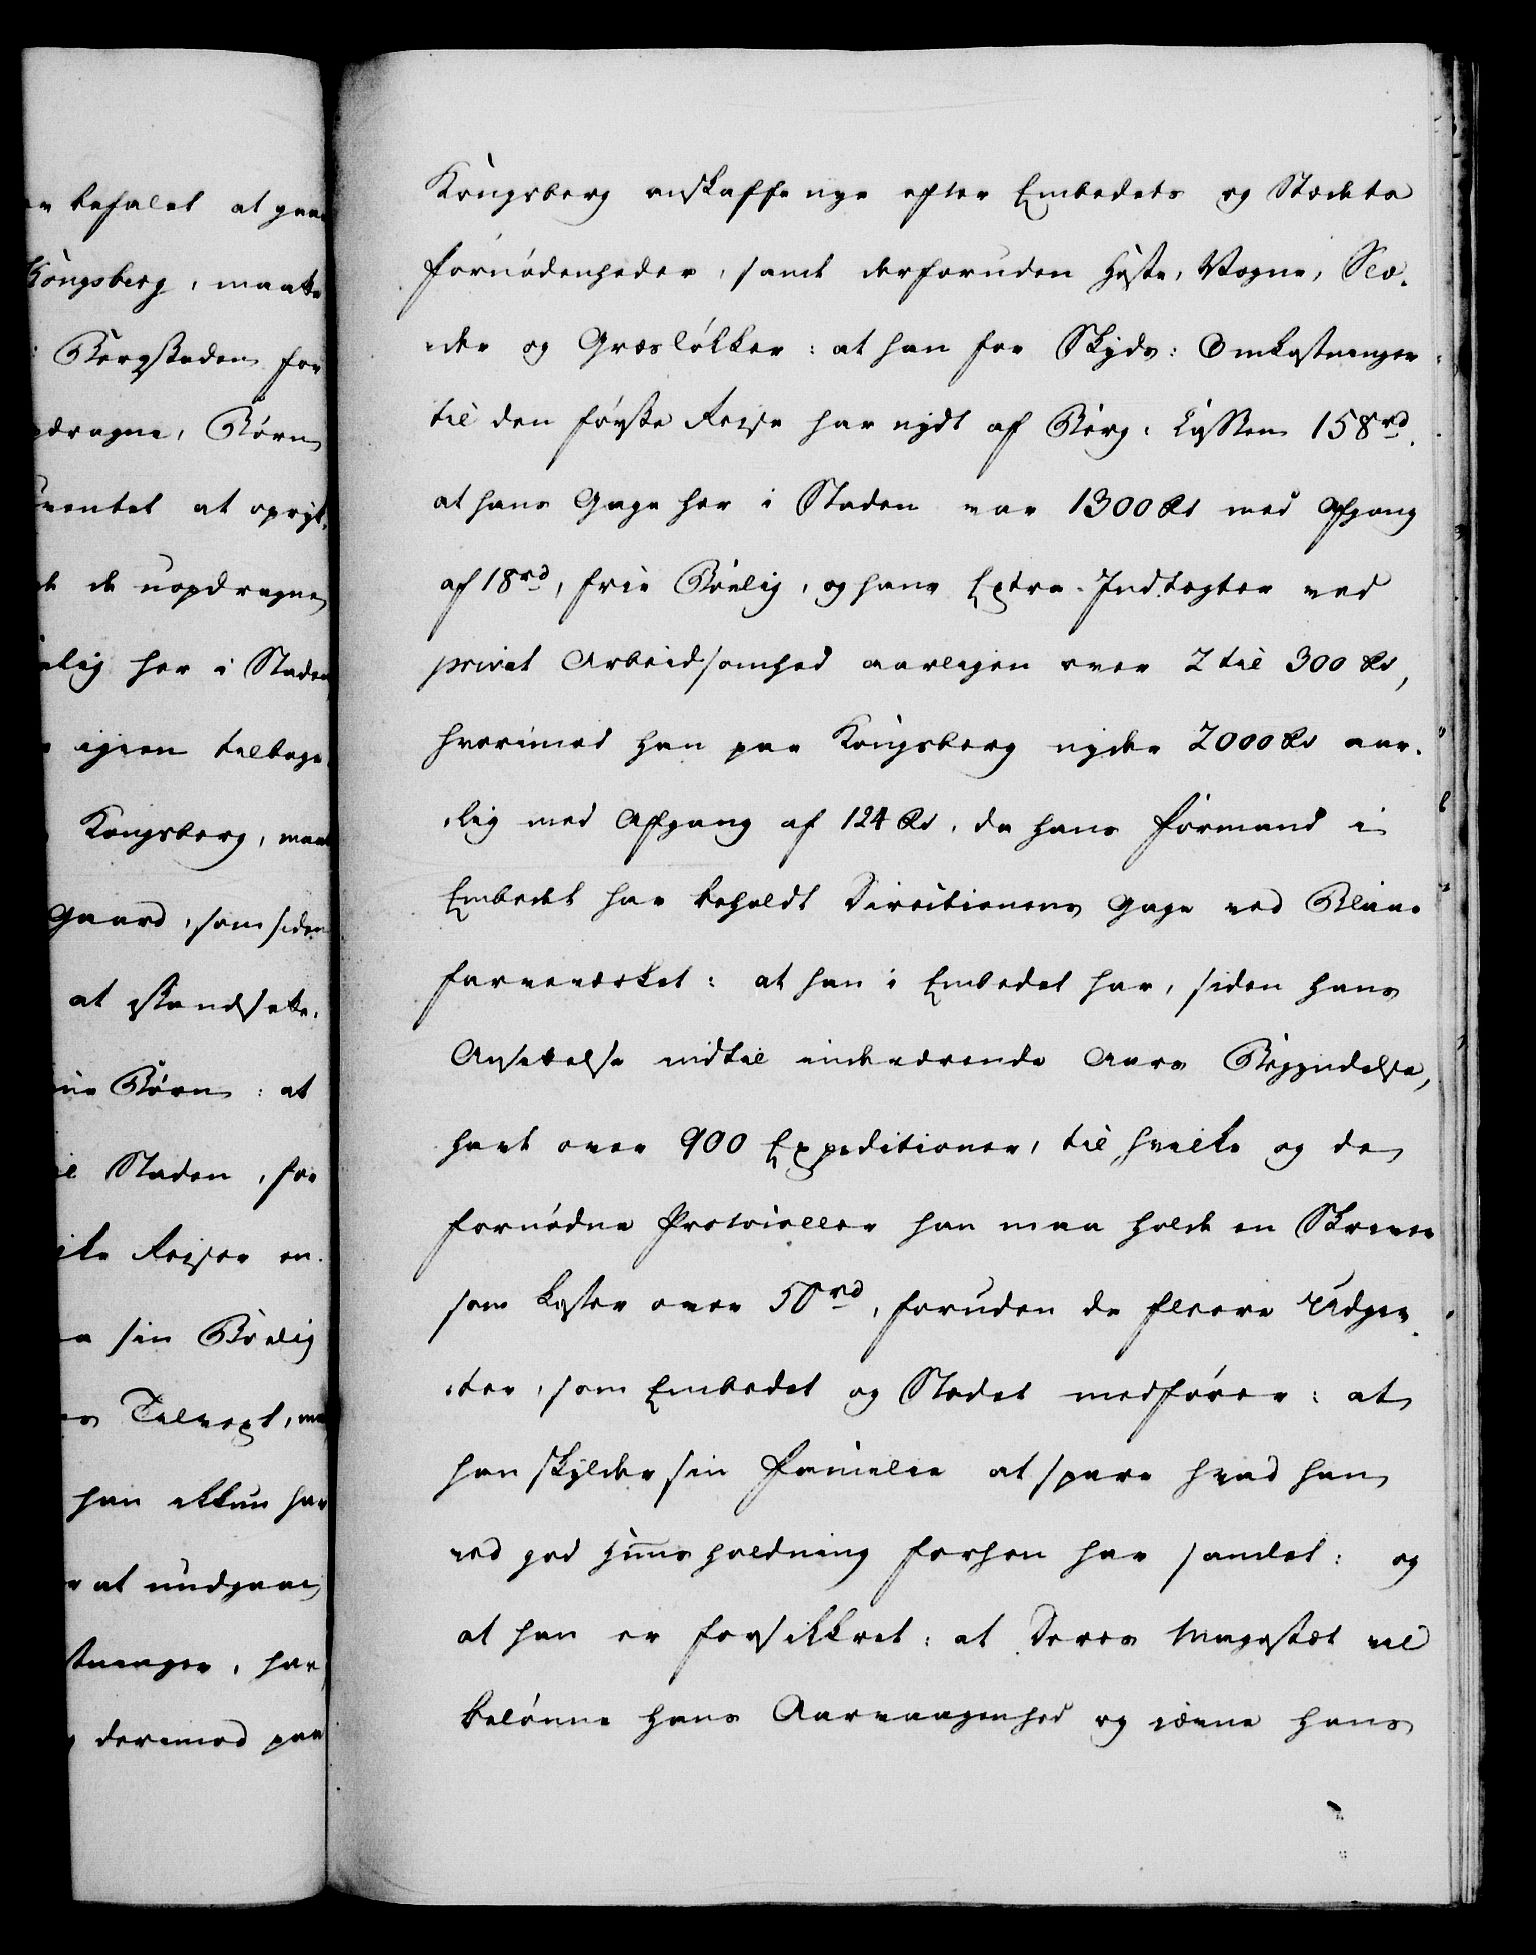 en befalet at gaae
Kongsberg, maatte
Bergstaden for
opdragne, Børn
ventet at opsyt¬
de uopdragne
olig her i Staden
igien tilbage
Kongsberg, maat
Gaard, som siden
at istandsette,
Børn: at
Staden, for
Reiser en¬
sin Boelig
Tilvext, maa
han ikkun har
at undgaae
stninger, har
derimod paa
Kongsberg anskaffe nye efter Embedets og Stædets
fornødenheder, samt derforuden Heste, Vogne, Slæ¬
der og Græsløkker: at han for Skyds-Omkostninger
til den første Reise har nydt af Berg-Cassen 158 rd.
at hans Gage her i Staden var 1300 Rd med Afgang
af 18 rd, frie Boelig, og hans Extra-Indtægter ved
privat Arbeidsomhed aarligen over 2 til 300 Rd,
hvorimod han paa Kongsberg nyder 2000 Rd aar¬
lig med Afgang af 124 Rd, da hans Formand i
Embedet har beholdt Directionens Gage ved Blaae
farveværket: at han i Embedet har, siden hans
Ansettelse indtil indeværende Aars Begyndelse,
havt over 900 Expeditioner, til hvilke og de
fornødne Protocoller han maa holde en Skriver
som koster over 50 rd, foruden de fleere Udgiv¬
ter, som Embedet og Stædet medfører: at
han skylder sin Familie at spare hvad han
ved god Huusholdning forhen har samlet: og
at han er forsikkret: at Deres Majestæt vil
belønne hans Aarvaagenhed og jævne hans